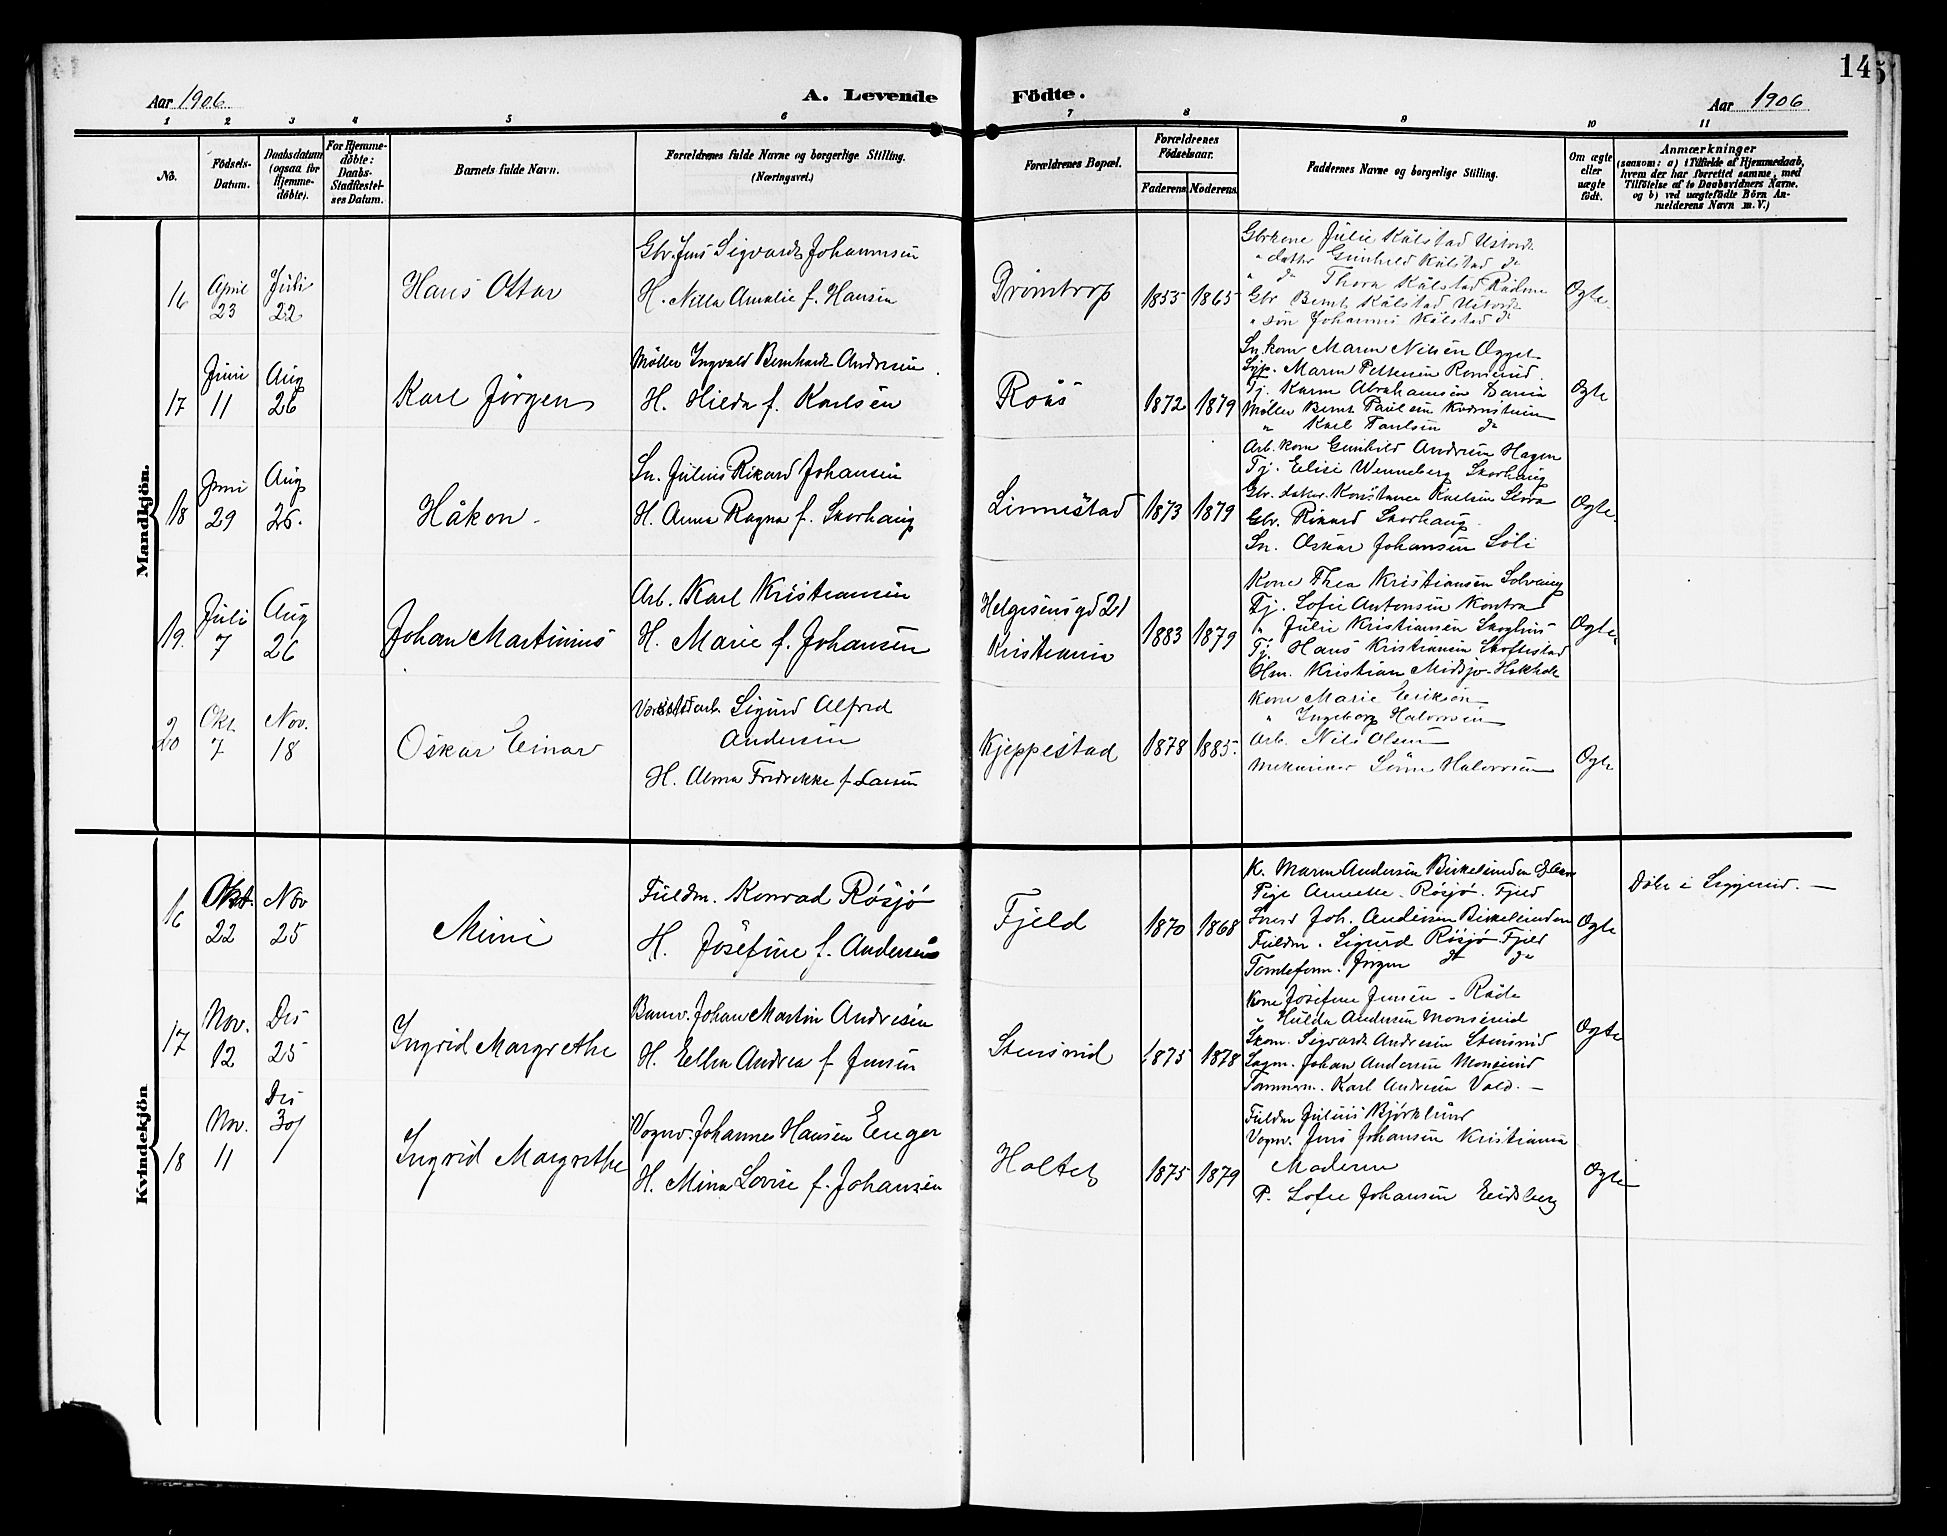 14
5
Aar 1906
A. Levende Födte.
Aar 1906
1 2 3 4 5 6 7 8 9 10 11
No.
Födsels-
Datum.
Daabsdatum
(ogsaa for
Hjemme-
döbte).
For Hjemme-
döbte:
Daabs-
Stadfæstel-
ses Datum.
Barnets fulde Navn.
Forældrenes fulde Navne og borgerlige Stilling.
(Næringsvei.)
Forældrenes Bopæl.
Forældrenes
Födselsaar.
Faderens Moderens
Faddernes Navne og borgerlige Stilling.
Om ægte
eller
uægte
födt.
Anmærkninger
(saasom: a) i Tilfælde af Hjemmedaab,
hvem der har forrettet samme, med
Tilföielse af to Daabsvidners Navne.
og b) ved uægtefödte Börn An-
melderens Navn m. V.)
Mandkjön.
16
April
23
Juli
22
Hans Ottar
Gbr. Jens Sigvards Johannesen
H. Netta Amalie f. Hansen
Drömtorp
1855 1865
Gbrkone Julie Kålstad
" datter Gunhild Kålstad do
" do Thora Kålstad Rådme
Gbr Bernt Kålstad
" søn Johannes Kålstad do
Ogte.
17
Juni
11
Aug
26
Karl Jörgen
Møller Ingvald Bernhard Andresen
H. Hilda f. Karlsen
Roås
1872 1879
Sn. kone Maren Nilsen
Syp. Maren Pettersen
Tj. Karen Abrahamsen
Møller Bernt Paulsen
" Karl Paulsen do
Ogte
18
Juni
29
Aug
26.
Håkon
Sn. Julius Rikard Johansen
H. Anna Ragna f. Skorhaug
Linnestad
1873 1879
Arb. kone Gunhild Andersen Hagen
Tj. Elise Wenneberg Skorhaug
Gbr. datter. Konstance Karlsen Skora
Gbr. Rikard Skorhaug
Sn. Oskar Johansen Søli
Ogte.
19.
Juli
7
Aug
26
Johan Martinius
Arb. Karl Kristiansen
H. Marie f. Johansen
Helgesensgd 21
Kristiania
1883 1879
Kone Thea Kristiansen Solvang
Tj. Sofie Antonsen Kontra
" Julie Kristiansen Skoghus
Tj. Hans Kristiansen Skoftestad
Hm. Kristian Midsjø-
Ogte
20
Okt.
7
Nov.
18
Oskar Einar
Verkstedarb. Sigurd Alfred
Andersen
H. Alma Fredrikke f. Larsen
Kjeppestad
1878 1885.
Kone Marie Eriksen
" Ingeborg Halvorsen
Arb. Nils Olsen
Mekaniker Sönne Halvorsen
Ogte
Kvindekjön
16
Okt.
22
Nov
25
Mimi
Fuldm. Konrad Røsjø
H. Josefine f. Andersen
Fjeld
1870 1868
K. Maren Andersen Birkelunden
Pige Annette Røsjø. Fjeld
Joh. Andersen Birkelunden
Fuldm. Sigurd Røsjø Fjeld
Tomteform. Jörgen do do
Ogte
Döbt i
17
Nov.
12
Des
25
Ingrid Margrethe
Banev. Johan Martin Andresen
H. Ellen Andrea f. Jensen
Stensrud
1875 1878
Kone Josefine Jensen - Råde
" Hulda Andersen Monserud
Skom. Sigvard Andresen Stensrud
Sagm. Johan Andersen Monserud
Tømmerm. Karl Andresen Vold. -
Ogte
18
Nov.
11
Des
30/
Ingrid Margrethe
Vognv. Johannes Hansen Enger
H. Mina Lovise f. Johansen
Holtet
1875 1879
Fuldm Julius Bjørklund
Vognv. Jens Johansen Kristiania
Moderen
P. Sofie Johansen Eidsberg
Ogte